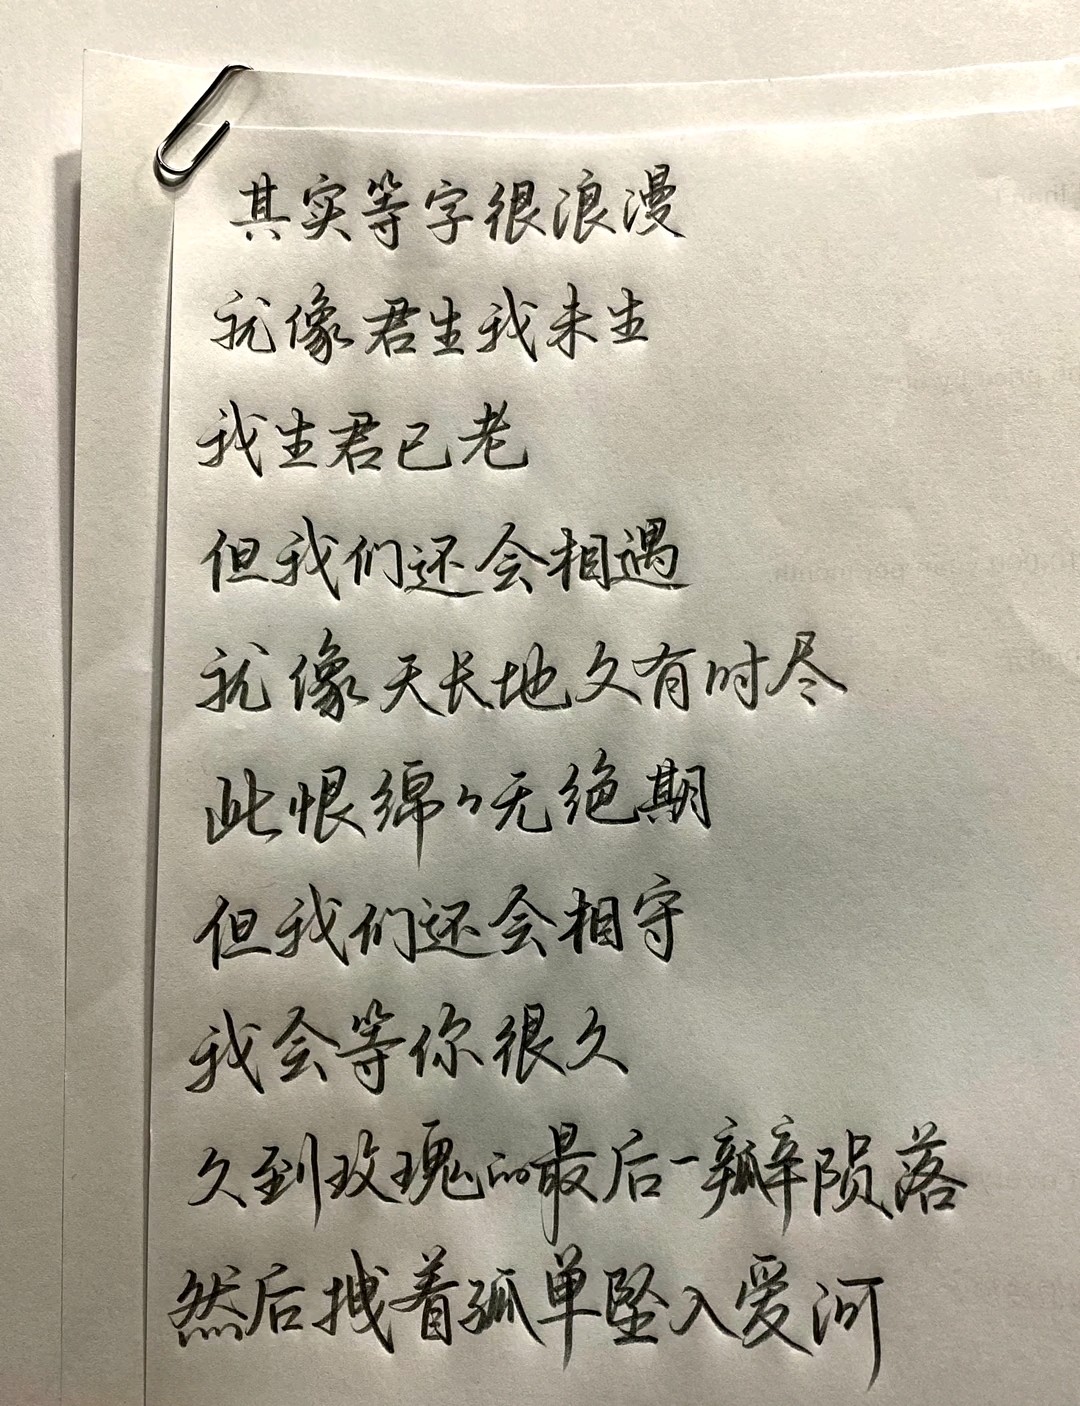 其实等字很浪漫
就像君生我未生
我生君已老
但我们还会相遇
就像天长地久有时尽
此恨绵々无绝期
但我们还会相守
我会等你很久
久到玫瑰的最后一瓣陨落
然后拽着孤单坠入爱河